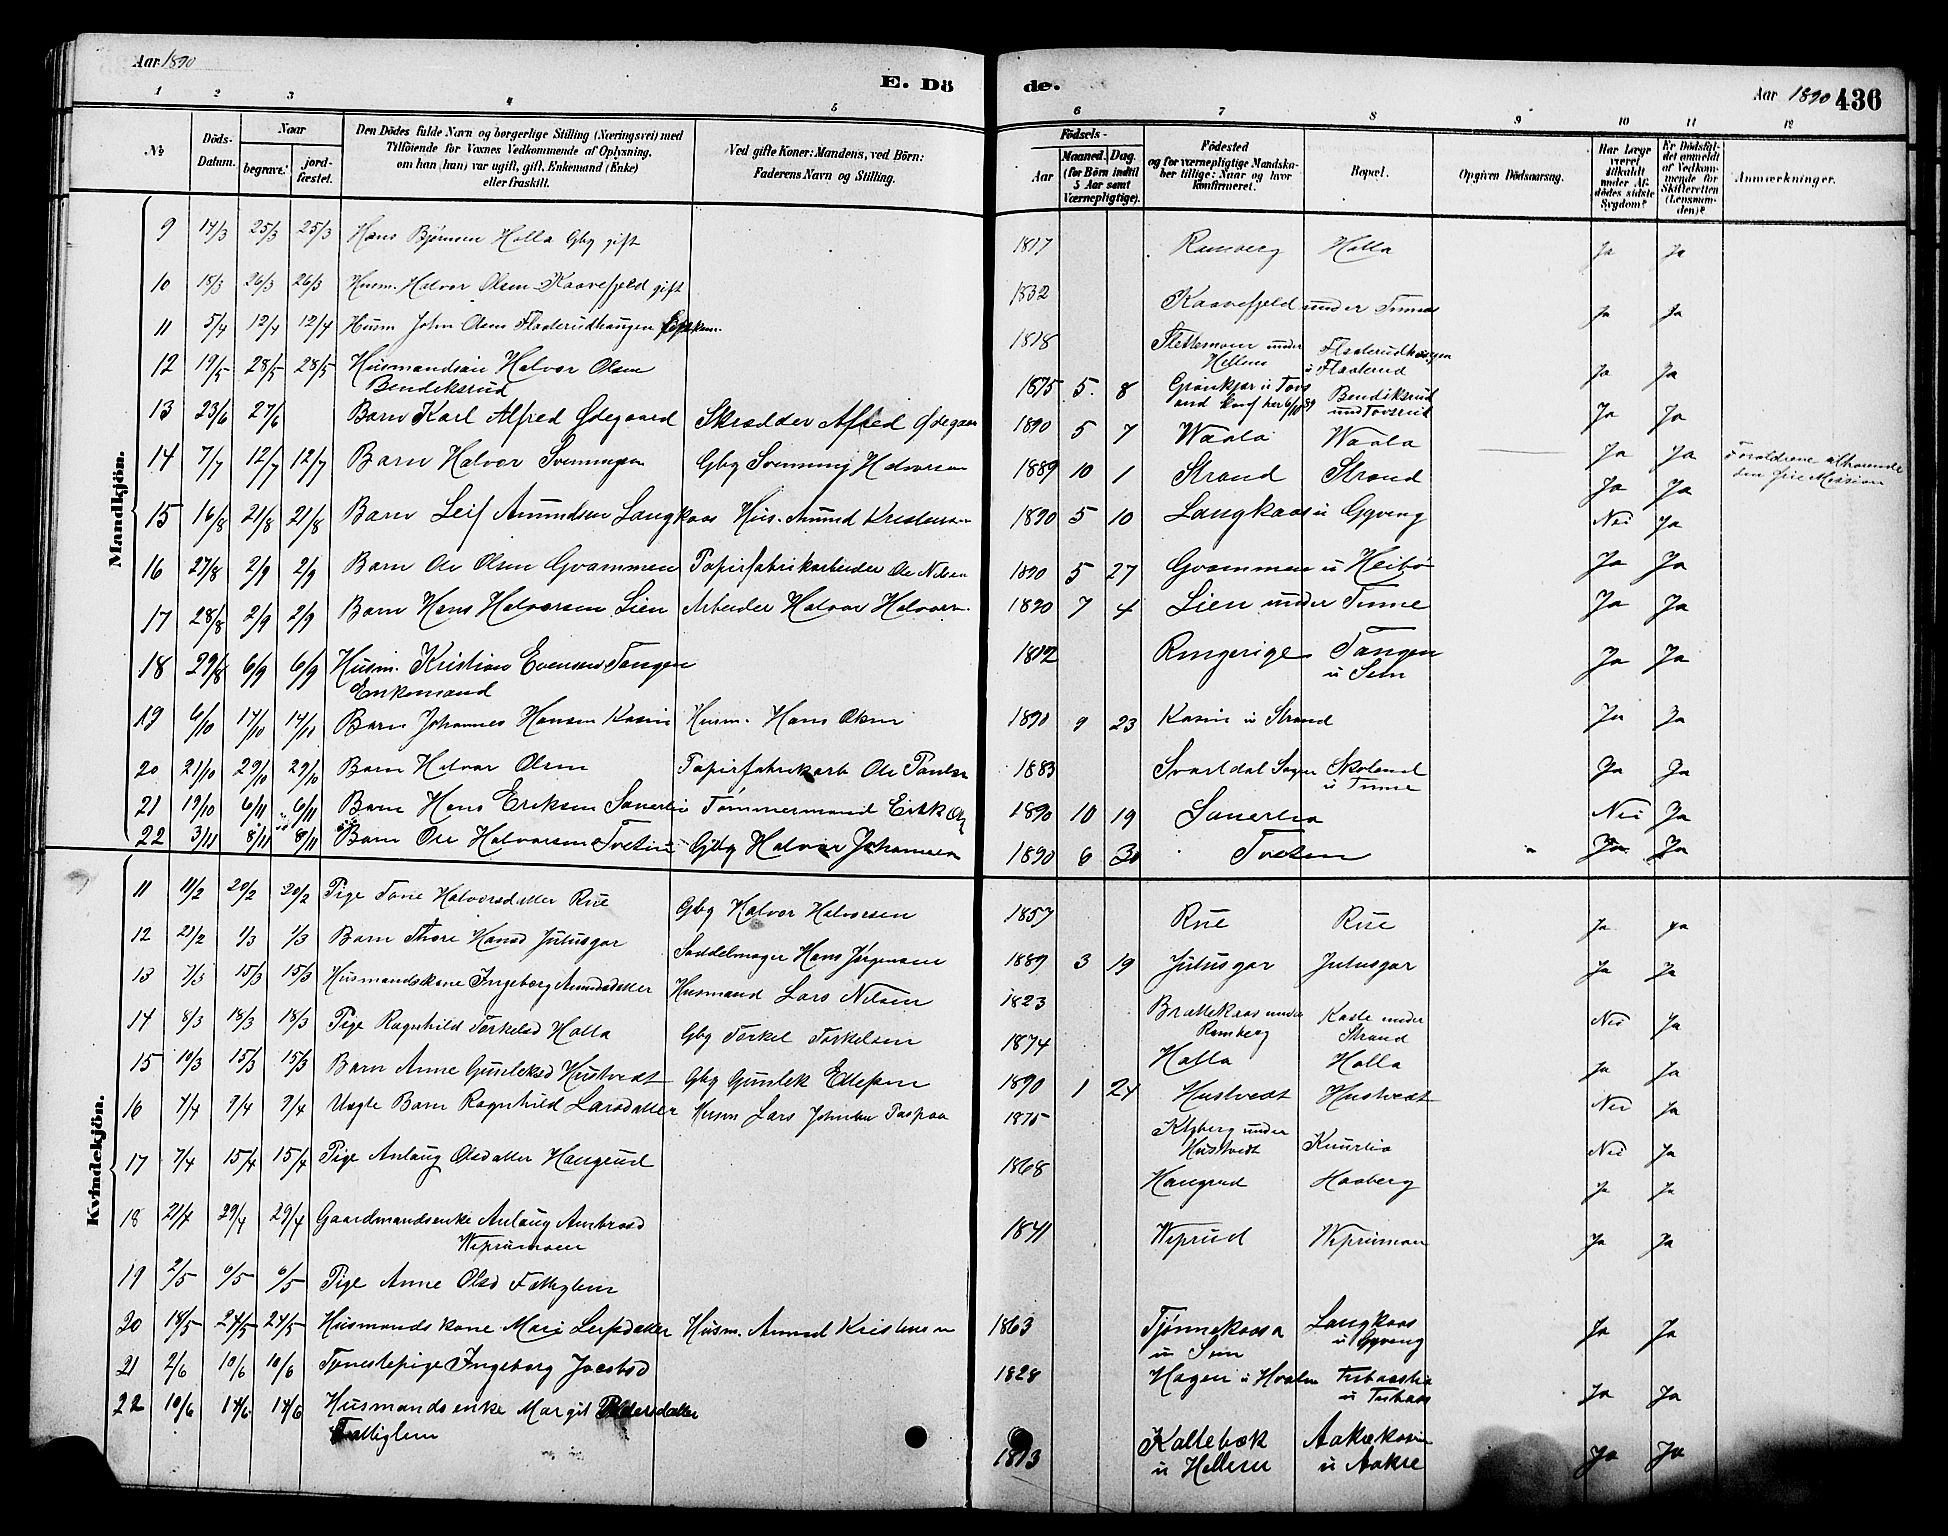 Aar 1890
E. Döde.
Aar 1890 436
1 2 3 4 5 6 7 8 9 10 11 12
No Döds-Datum. Naar begravet. jordfæstet. Den Dödes fulde Navn og borgerlige Stilling (Næringsvei) med Tilföiende for Voxnes Vedkommende af Oplysning, om han (hun) var ugift, gift, Enkemand (Enke) eller fraskilt. Ved gifte Koner: Mandens, ved Börn: Faderens Navn og Stilling. Födsels- Aar Maaned. Dag. (for Börn indtil 5 Aar samt Værnepligtige). Födested og for værnepligtige Mandskaber tillige: Naar og hvor konfirmeret. Bopæl. Opgiven Dödsaarsag. Har Læge været tilkaldt under Afdödes sidste Sygdom? Er Dödsfaldet anmeldt af Vedkommende for Skifteretten (Lensmanden)? Anmærkninger.
Mandkjön.
9 14/3 25/3 25/3 Hans Bjørnsen Holla Gbg gift 1817 Ramberg Holla Ja Ja
10 18/3 26/3 26/3 Husm. Halvor Olsen Kaavefjeld gift 1832 Kaavefjeld under Tinne Ja Ja
11 5/4 12/4 12/4 Husm John Olsen Flaaterudhaugen 1818 Slettemoen under Hellem Flaaterudhaugen u Flaaterud Ja Ja
12 19/5 28/5 28/5 Husmandssøn Halvor Olsen Bendiksrud 1875 5 8 Grønkjær u Tovsrud konf her 6/10 89 Bendiksrud und Tovsrud Ja Ja
13 23/6 27/6 Barn Karl Alfred Ødegaard Skrædder Alfred Ødegaa 1890 5 7 Waala Waala Ja Ja
14 7/7 12/7 12/7 Barn Halvor Svenningsen Gbg Svenning Halvorsen 1889 10 1 Strand Strand Ja Ja Forældrene tilhørende den frie Mission
15 16/8 21/8 21/8 Barn Leif Amundsen Langkaas Hus. Amund Kristensen 1890 5 10 Langkaas u Gyveng Nei Ja
16 27/8 2/9 2/9 Barn Ole Olsen Gvammen Papirfabrikarbeider Ole Nilsen 1890 5 27 Gvammen u Heibø Ja Ja
17 28/8 2/9 2/9 Barn Hans Halvorsen Lien Arbeider Halvor Halvors. 1890 7 4 Lien under Tinne Ja Ja
18 29/8 6/9 6/9 Husm. Kristian Evensen Tangen Enkemand 1812 Ringerige Tangen u Sem Ja Ja
19 6/10 14/10 14/10 Barn Johannes Hansen Kasin Husm. Hans Olsen 1890 9 23 Kasin u Strand Ja Ja
20 21/10 29/10 29/10 Barn Halvor Olsen Papirfabrikarb Ole Paulsen 1883 Svartdal Sogn Skoland u Tinne Ja Ja
21 19/10 6/11 6/11 Barn Hans Eriksen Sanerlia Tømmermand Erik Ols 1890 10 19 Sanerlia Nei Ja
22 3/11 8/11 8/11 Barn Ole Halvorsen Tveten Gbg Halvor Johannesen 1890 6 30 Tveten Ja Ja
Kvindekjön.
11 11/2 20/2 20/2 Pige Tone Halvorsdatter Rue Gbg Halvor Halvorsen 1857 Rue Rue Ja Ja
12 21/2 1/3 1/3 Barn Thora Hansd Julusgar Saddelmager Hans Jørgensen 1889 3 19 Julusgar Julusgar Ja Ja
13 7/3 15/3 15/3 Husmandskone Ingeborg Amundsdatter Husmand Lars Nilsen 1823 Brattekaas under Ramberg Kaste under Strand Nei Ja
14 8/3 18/3 18/3 Pige Ragnhild Torkelsd Holla Gbg Torkel Torkelsen 1874 Holla Holla Ja Ja
15 10/3 15/3 15/3 Barn Anne Gunleksd Hustvedt Gbg Gunlek Ellefsen 1890 1 24 Hustvedt Hustvedt Nei Ja
16 7/4 9/4 9/4 Uægte Barn Ragnhild Larsdatter Husm Lars Johnsen 1875 under Hustvedt Knurlia Nei Ja
17 7/4 15/4 15/4 Pige Anlaug Olsdatter Haugrud 1868 Haugrud Haaberg Ja Ja
18 21/4 29/4 29/4 Gaardmandsenke Anlaug Ambrosd Weprimoen 1841 Weprud Weprimoen Ja Ja
19 2/5 6/5 6/5 Pige Anne Olsd Fattiglem
20 18/5 24/5 24/5 Husmandskone Mari Leifsdatter Husm. Amund Kristensen 1863 Tjønnekaasa u Sem Langkaas u Gyveng Ja Ja
21 2/6 10/6 10/6 Tjenestepige Ingeborg Jacobsd 1828 Hagen u Hvalen Ja Ja
22 10/6 14/6 14/6 Husmandsenke Margit Pedersdatter Fattiglem 1813 Kallebæk u Hellem Aakrekasin u Aakre Ja Ja